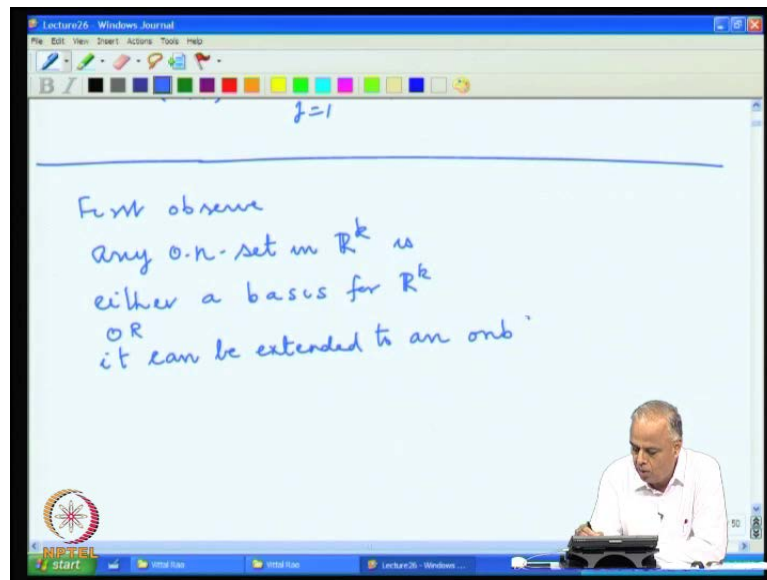 Lecture26 - Windows Journal
File Edit View Insert Actions Tools Help
B I
j=1
First observe
any o.n. set in ℝᵏ is
either a basis for ℝᵏ
OR
it can be extended to an onb
50
NPTEL
start Vittal Rao Vittal Rao Lecture26 - Windows ...